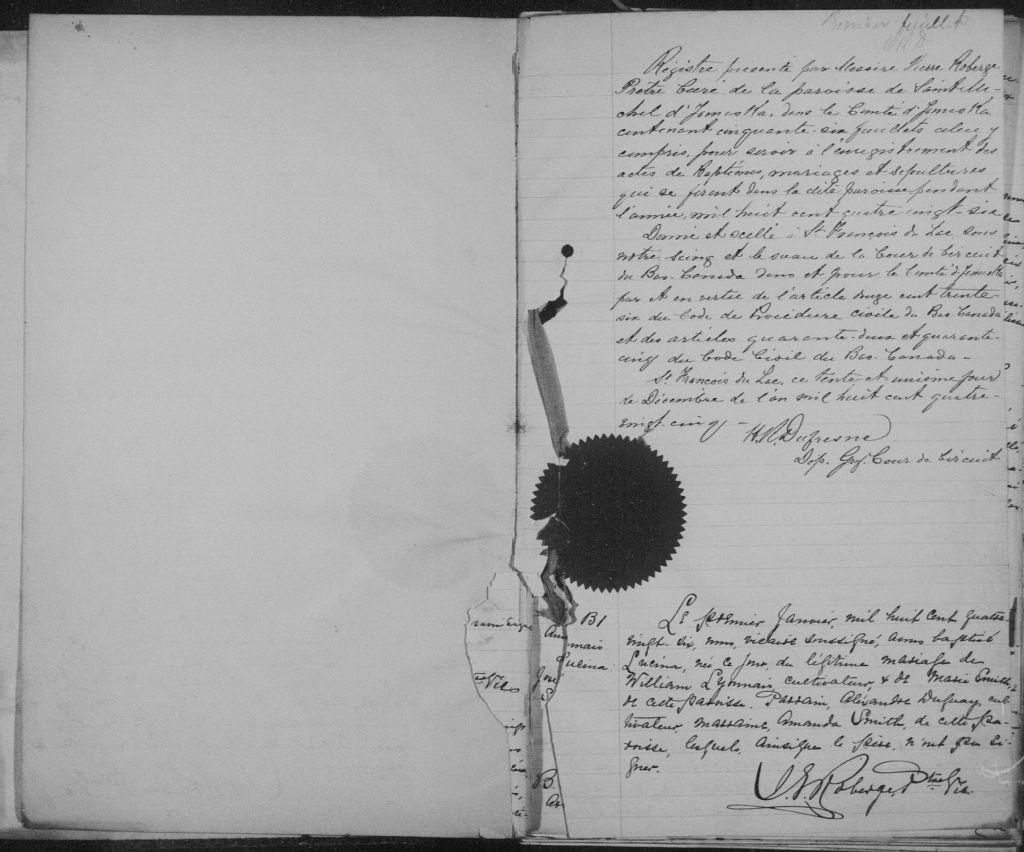 Premier feuillet
Registre présenté par Messire Pierre Roberge
Prêtre Curé de la paroisse de Saint Mi-
chel d'Yamaska, dans le Comté d'Yamaska
contenant cinquante-six feuillets celui y
compris, pour servir à l'enregistrement des
actes de Baptêmes, mariages et sépultures
qui se feront dans la dite paroisse pendant
l'année, mil huit cent quatre vingt-six
Donné et scellé à St François du Lac sous
notre seing et le sceau de la Cour de Circuit
du Bas-Canada dans et pour le Comté d'Yamaska
par et en vertu de l'article douze cent trente-
six du Code de Procédure civile du Bas-Canada
et des articles quarante-deux et quarante-
cinq du Code Civil du Bas-Canada -
St François du Lac, ce trente-et-unième jour
de Décembre de l'an mil huit cent quatre-
vingt-cinq -
H. R. Dufresne
Dép. Grf. Cour de Circuit
B1
Le premier Janvier, mil huit cent quatre
vingt-six, nous, vicaire soussigné, avons baptisé
Lucina, née ce jour, du légitime mariage de
William Lyonnais, cultivateur, & de Marie Smith,
de cette paroisse. Parrain, Alexandre Duguay, cul-
tivateur, marraine, Amanda Smith, de cette pa-
roisse, lesquels, ainsi que le père, n'ont pu si-
gner.
Roberge, Ptre Vic.
Vic
B.